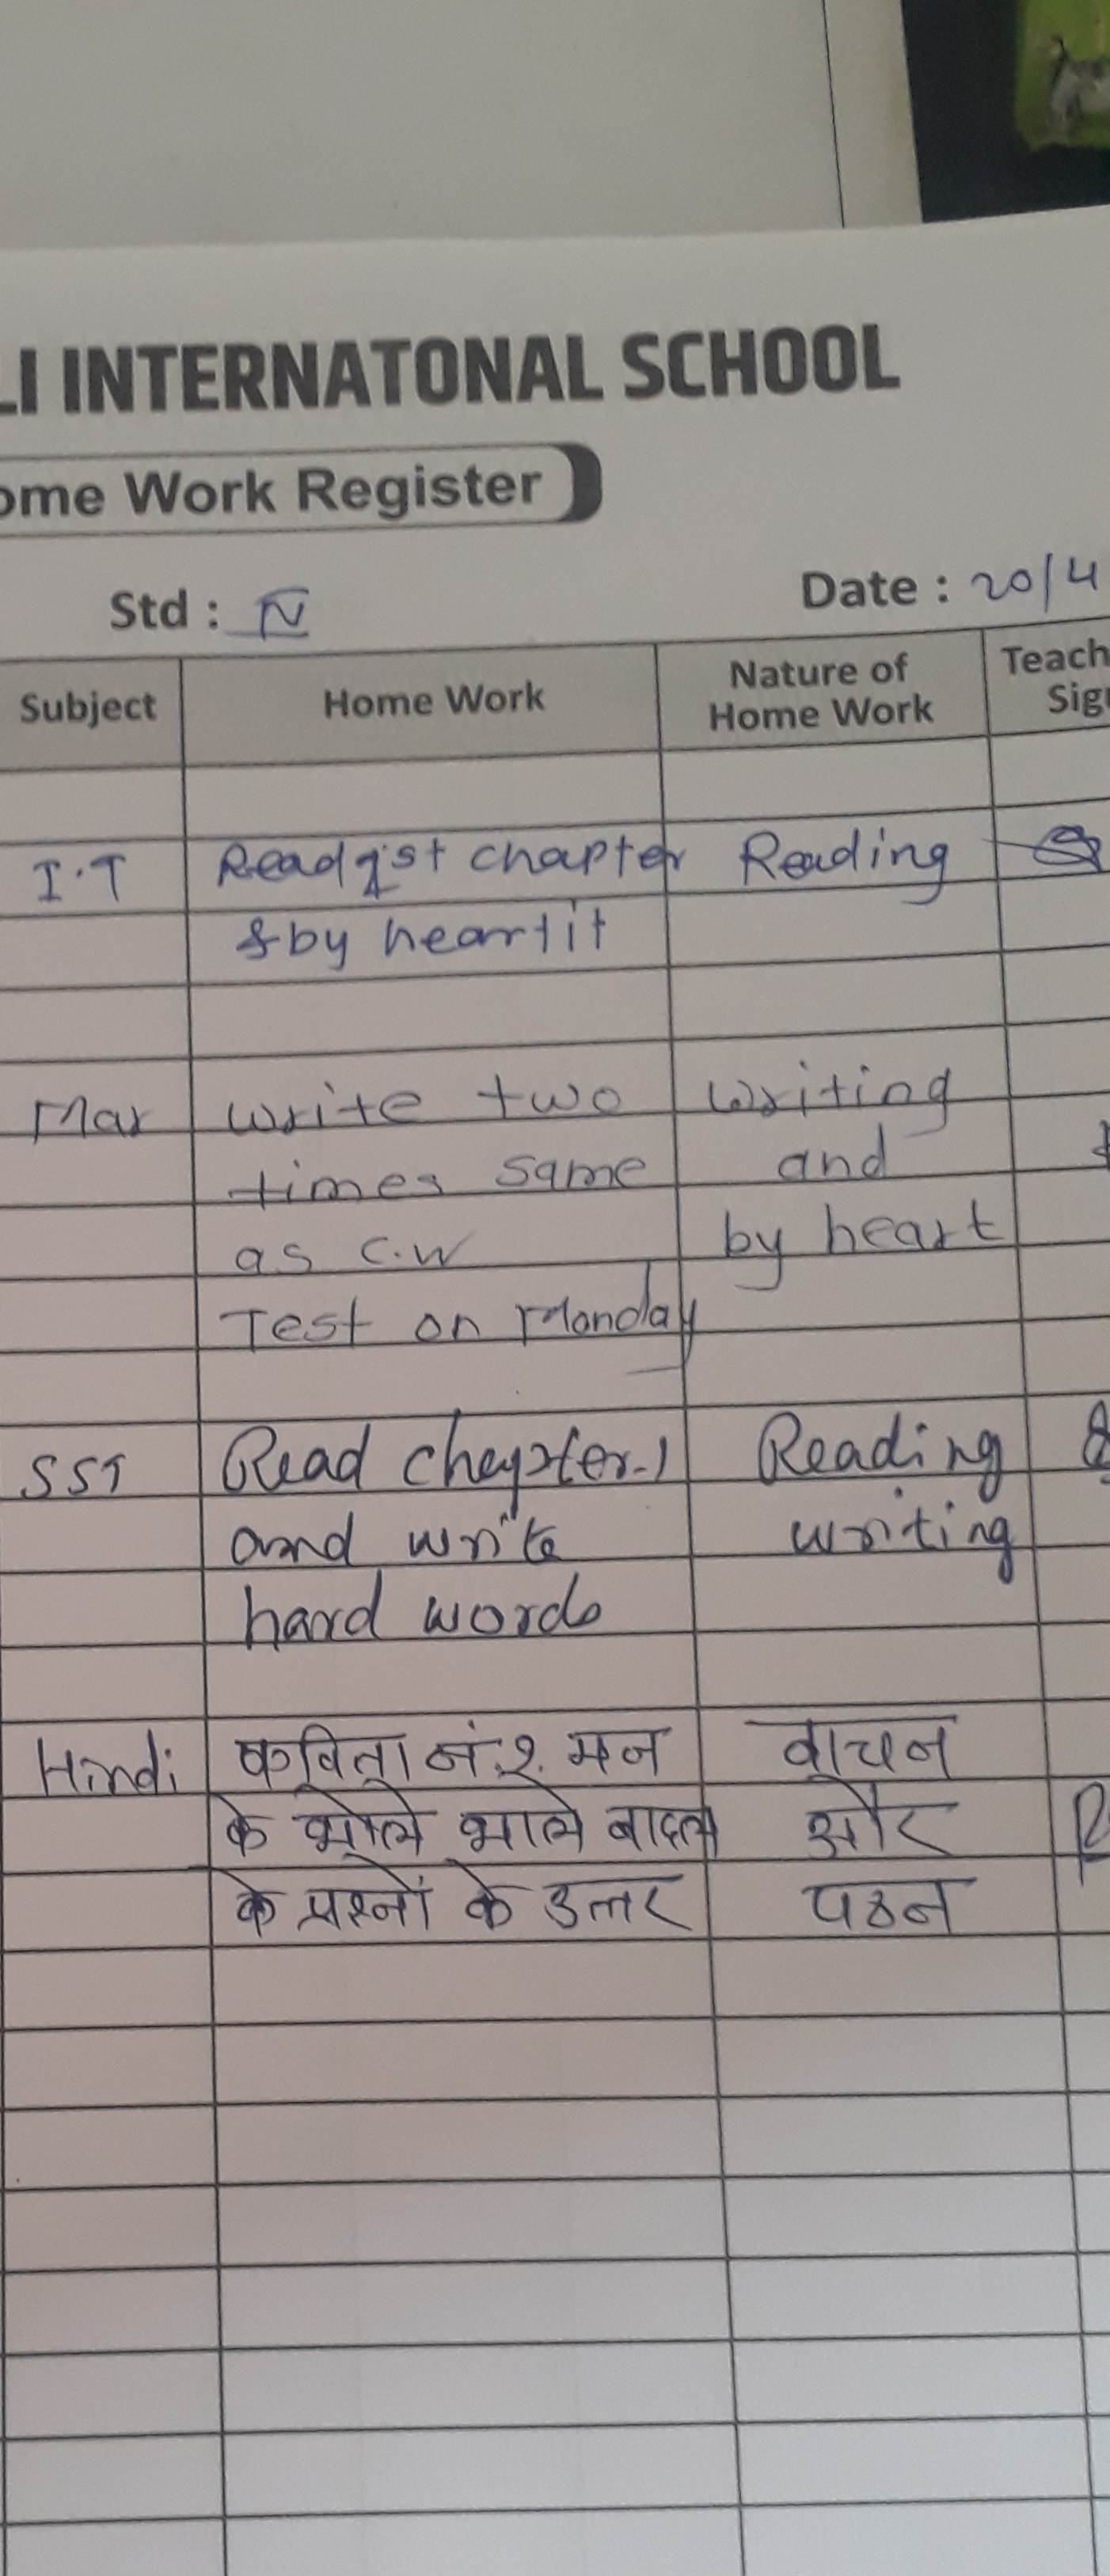 LI INTERNATONAL SCHOOL
ome Work Register
Std : IV Date : 20/4
Subject Home Work Nature of Home Work Teach Sig
I.T Read 1st chapter Reading
& by heart it
Mar write two writing
times same and
as c.w by heart
Test on Monday
SST Read chapter-1 Reading
and write writing
hard words
Hindi कविता नं.१. मन वाचन
के भोले भाले बादल और
के प्रश्नों के उत्तर पठन